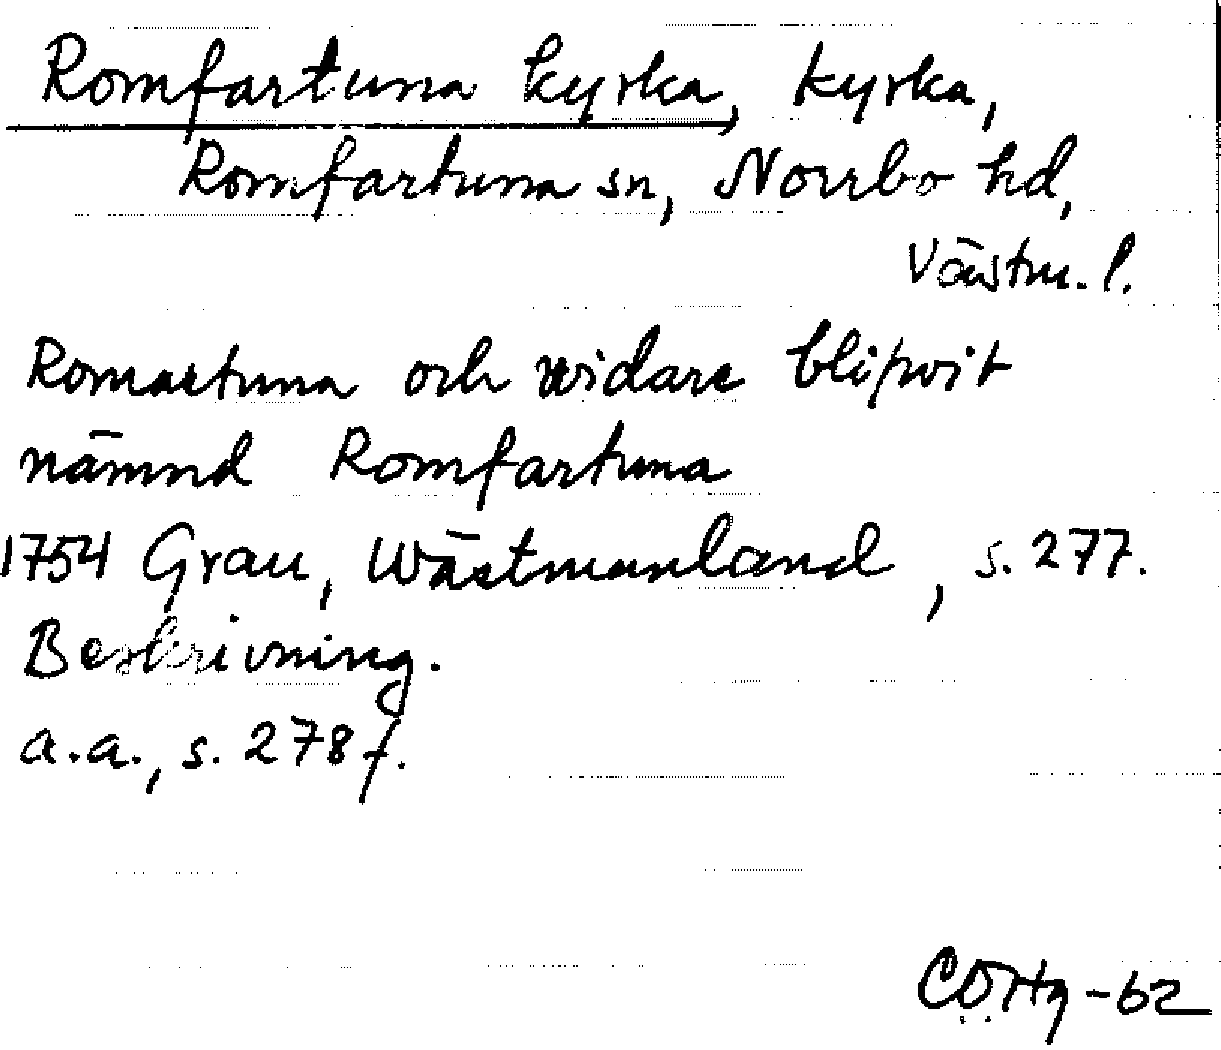 Romfartuna kyrka, kyrka,
Romfartuna sn, Norrbo hd,
Västm. l.
Romartuna och widare blifwit
nämnd Romfartuna
1754 Grau, Wästmanland, s. 277.
Beskrivning.
a.a., s. 278 f.
-62